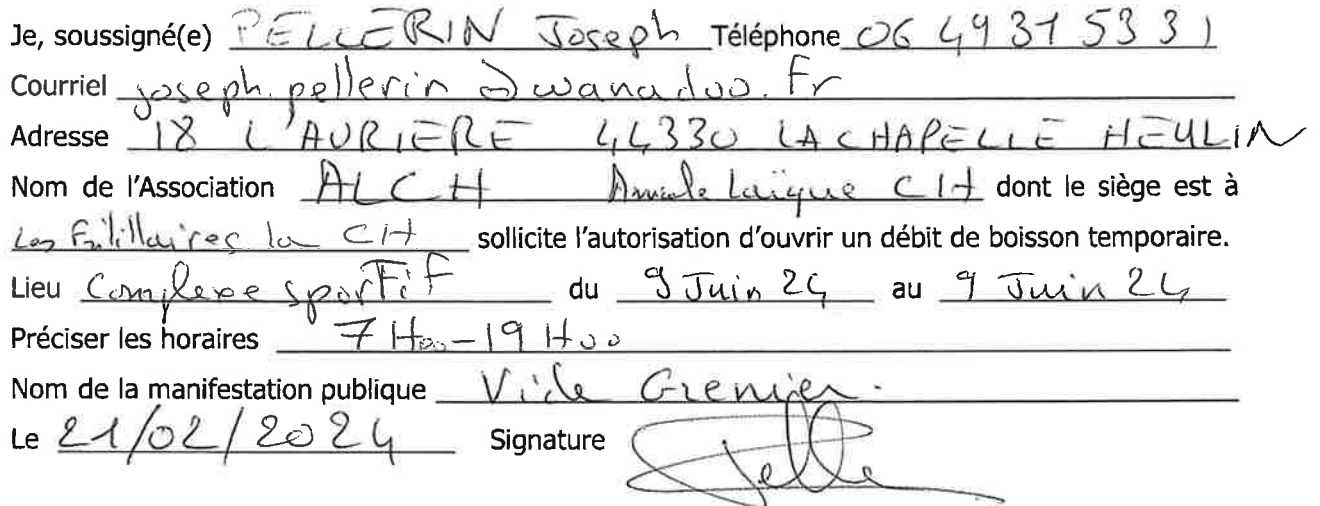 Je, soussigné(e) PELLERIN Joseph Téléphone 06 49 31 53 31
Courriel joseph.pellerin @wanadoo.Fr
Adresse 18 L'AURIERE 44330 LA CHAPELLE HEULIN
Nom de l'Association ALCH Amicale Laïque CH dont le siège est à
Les Fritillaires la CH sollicite l'autorisation d'ouvrir un débit de boisson temporaire.
Lieu Complexe sporTiF du 9 Juin 24 au 9 Juin 24
Préciser les horaires 7 H00-19 H00
Nom de la manifestation publique Vide Grenier.
Le 21/02/2024 Signature Pelle